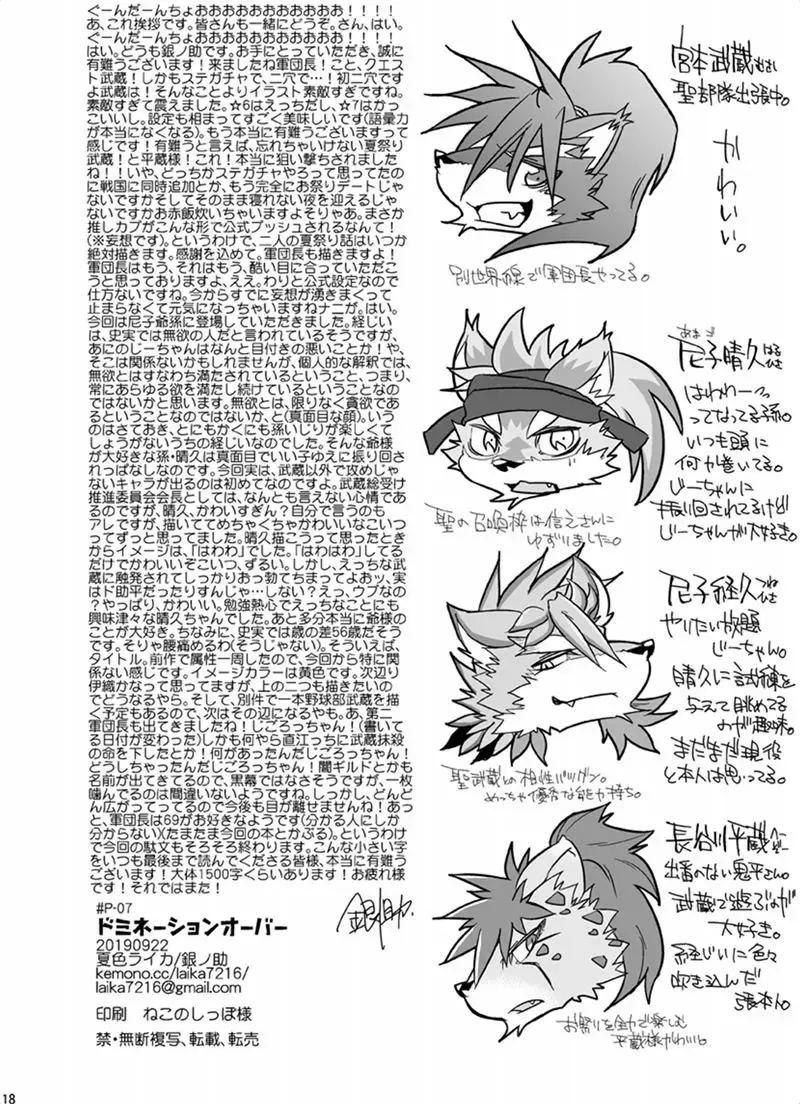 ぐーんだーんちょおおおおおおおおおおお!!!!
あ、これ挨拶です。皆さんも一緒にどうぞ。さん、はい。
ぐーんだーんちょおおおおおおおおおおお!!!!
はい。どうも銀ノ助です。お手にとっていただき、誠に
有難うございます!来ましたね軍団長!こと、クエス
ト武蔵!しかもステガチャで、二穴で…!初二穴です
よ武蔵は!そんなことよりイラスト素敵すぎですね。
素敵すぎて震えました。☆6はえっちだし、☆7はかっ
こいいし。設定も相まってすごく美味しいです(語彙力
が本当になくなる)。もう本当に有難うございますって
感じです!有難うと言えば、忘れちゃいけない夏祭り
武蔵!と平蔵様!これ!本当に狙い撃ちされました
ね!!いや、どっちかステガチャやろって思ってたの
に戦国に同時追加とか、もう完全にお祭りデートじゃ
ないですかそしてそのまま寝れない夜を迎えるじゃ
ないですかお赤飯炊いちゃいますよそりゃあ。まさか
推しカプがこんな形で公式プッシュされるなんて!
(※妄想です)。というわけで、二人の夏祭り話はいつか
絶対描きます。感謝を込めて。軍団長も描きますよ!
軍団長はもう、それはもう、酷い目に合っていただこ
うと思っておりますよ、ええ。わりと公式設定なので
仕方ないですね。今からすでに妄想が湧きまくって
止まらなくて元気になっちゃいますねナニが。はい。
今回は尼子爺孫に登場していただきました。経じい
は、史実では無欲の人だと言われているそうですが、
あにのじーちゃんはなんと目付きの悪いことか!や、
そこは関係ないかもしれませんが、個人的な解釈では、
無欲とはすなわち満たされているということ、つまり、
常にあらゆる欲を満たし続けているということなの
ではないかと思います。無欲とは、限りなく貪欲であ
るということなのではないか、と(真面目な顔)。いう
のはさておき、とにもかくにも孫いじりが楽しくて
しょうがないうちの経じいなのでした。そんな爺様
が大好きな孫・晴久は真面目でいい子ゆえに振り回さ
れっぱなしなのです。今回実は、武蔵以外で攻めじゃ
ないキャラが出るのは初めてなのですよ。武蔵総受け
推進委員会会長としては、なんとも言えない心情であ
るのですが、晴久、かわいすぎん?自分で言うのも
アレですが、描いててめちゃくちゃかわいいなこいつ
ってずっと思ってました。晴久描こうって思ったとき
からイメージは、「はわわ」でした。「はわはわ」してる
だけでかわいいぞこいつ、ずるい。しかし、えっちな武
蔵に触発されてしっかりおっ勃てちまってよおッ、実
はド助平だったりすんじゃ…しない?えっ、ウブなの
?やっぱり、かわいい。勉強熱心でえっちなことにも
興味津々な晴久ちゃんでした。あと多分本当に爺様の
ことが大好き。ちなみに、史実では歳の差56歳だそう
です。そりゃ腰痛めるわ(そうじゃない)。そういえば、
タイトル。前作で属性一周したので、今回から特に関
係ない感じです。イメージカラーは黄色です。次辺り
伊織かなって思ってますが、上の二つも描きたいの
でどうなるやら。そして、別件で一本野球部武蔵を描
く予定もあるので、次はその辺になるやも。あ、第二
軍団長も出てきましたね!じごろっちゃん!(書いて
る日付が変わった)しかも何やら直江っちに武蔵抹殺
の命を下したとか!何があったんだじごろっちゃん!
どうしちゃったんだじごろっちゃん!闇ギルドとかも
名前が出てきてるので、黒幕ではなさそうですが、一枚
噛んでるのは間違いないようですね。しっかし、どんど
ん広がってってるので今後も目が離せませんね!あっ
と、軍団長は69がお好きなようです(分かる人にしか
分からない)(たまたま今回の本とかぶる)。というわけ
で今回の駄文もそろそろ終わります。こんな小さい字
をいつも最後まで読んでくださる皆様、本当に有難う
ございます!大体1500字くらいあります!お疲れ様
です!それではまた!
#P-07
ドミネーションオーバー
20190922
夏色ライカ/銀ノ助
kemono.cc/laika7216/
laika7216@gmail.com
印刷 ねこのしっぽ様
禁・無断複写、転載、転売
銀ノ助
宮本武蔵むさし
聖部隊出張中。
かわいい。
別世界線で軍団長やってる。
あまご
尼子晴久はるひさ
はわわーっ
ってなってる孫。
いつも頭に
何か巻いてる。
じーちゃんに
振り回されてるけど
じーちゃんが大好き。
聖の召喚枠は信之さんに
ゆずりました。
尼子経久つねひさ
ヤリたい放題
じーちゃん。
晴久に試練を
与えて眺めてる
のが趣味。
まだまだ現役
と本人は思ってる。
聖武蔵との相性バツグン。
めっちゃ優秀な能力持ち。
長谷川平蔵へーぞー
出番のない鬼平さん。
武蔵で遊ぶのが
大好き。
経じいに色々
吹き込んだ
張本人。
お祭りを全力で楽しむ
平蔵様かわいい。
18